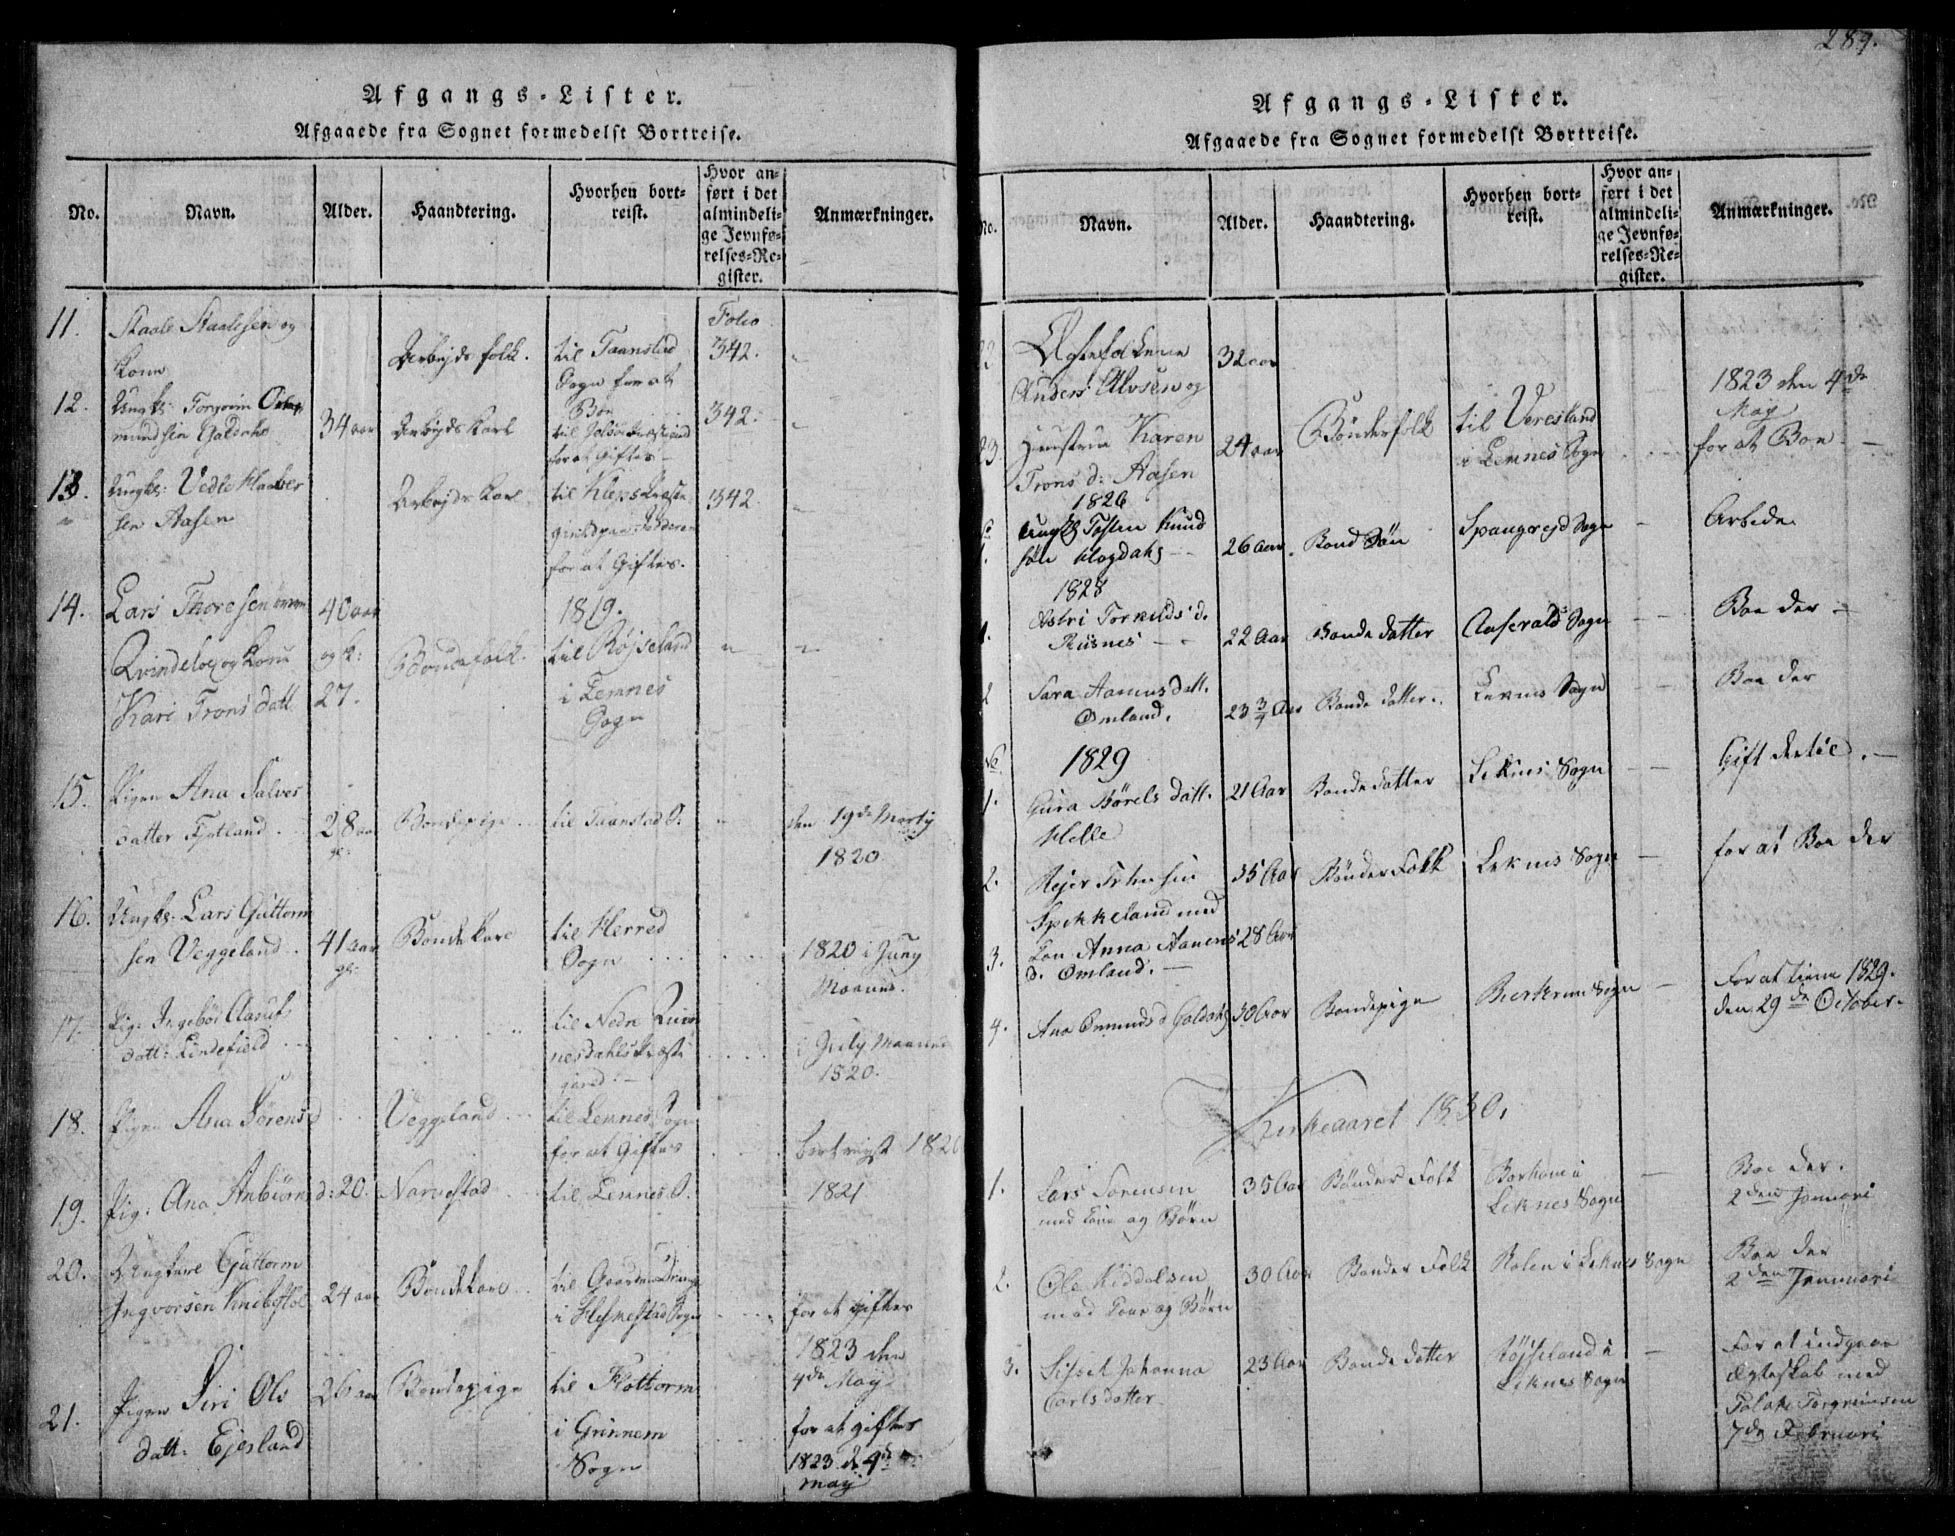 Afgangs-Lister.
Afgaaede fra Sognet formedelst Bortreise.
No.
Navn.
Alder.
Haandtering.
Hvorhen bort-
reist.
Hvor an-
ført i det
almindeli-
ge Jevnfø-
relses-Re-
gister.
Anmærkninger.
11.
Staale Staalesen og
Kone
Arbejds folk.
til Faanstad
Sogn for at
Boe
Folio
342.
12.
Ungk:
34 aar
Arbejds Karl
for at Giftes
342.
13.
Ungk: Vedle
sen Aasen
Arbejds Karl
til Kleps
for at Giftes.
342
14.
Lars Thoresen
Qvindelog og Kone
Kari Trons Datt.
40 aar
og K:
27.
Bondefolk.
1819.
til Røjseland
i Lennes
Sogn
15.
Pigen Ana Salves
datter Fjotland
28 aar
gl:
Bondepige
til Faanstad S.
den 19de Marty
1820
16.
Ungk: Lars Guttorm
sen Veggeland
41 aar
gl:
Bondekarl
til Herred
Sogn
1820 i Juny
Maaned.
17.
Pig: Ingebor
datt: Lindefield
til Nedre
nesdahls Præste
gield
i July Maaned
1820.
18.
Pigen Ana Sørens d
Veggeland
til Lennes Sogn
for at Giftes
bortrejst 1820
19.
Pig: Ana Anbiørns d: 20.
Narvestad
til Lennes S.
1821
20.
Ungkarl Guttorm
Ingvorsen
24 aar
Bondekarl
til Gaarden
i Sogn
for at giftes
1823 den
4de May
21.
Pigen Siri Ols
datt: Ejesland
26 aar
Bondepige
til Flottorm
i Grinnem
Sogn
for at giftes
1823 d. 4de
may
289.
Afgangs-Lister.
Afgaaede fra Sognet formedelst Bortreise.
No.
Navn.
Alder.
Haandtering.
Hvorhen bort-
reist.
Hvor an-
ført i det
almindeli-
ge Jevnfø-
relses-Re-
gister.
Anmærkninger.
Anders Alvsen og
32 aar
23
Hustrue Karen
Trons d: Aasen
24 aar
Bønderfolk
til Veresland
i Lennes Sogn
1823 den 4de
May
for at Boe
1826
1.
Ungk Tosten Knud
søn
26 Aar.
Bond Søn
Spangrejd Sogn
Arbede
1828
1.
Astri Torkilds d.
Rusnes
22 Aar
Bonde datter
Aaserald Sogn
Boe der
2
Sara Aanensdatt.
Omland.
23 3/4 Aar
Bonde datter
Leknes Sogn
Boe der
1829
1.
Gura Børels datt.
Helle
21 Aar
Bondedatter
Leknes Sogn
Gift dertil.
2.
Rejer
Spikkeland med
35 Aar
Bønder Folk
Leknes Sogn
for at Boe der
3.
Kon Anna Aanens
d. Omland.
28 Aar
4.
Ana Omunds d
30 Aar
Bondepige
Bierkrem Sogn
For at tiene 1829.
den 29de October.
Kirkeaaret 1830,
1.
Lars Sorensen
med Kone og Børn
35 Aar
Bønder Folk
Borhom i
Leknes Sogn
Boe der.
2den Januari
2.
Ole
med Kone og Børn
30 Aar
Bonder Folk
Holen i Leknes Sogn
Boe der
2den Januari
3.
Sisset Johanna
Carlsdatter
23 Aar
Bonde datter
Røjseland i
Leknes Sogn
For at indgaae
Ægteskab med
Torgrimsen
7de Februari